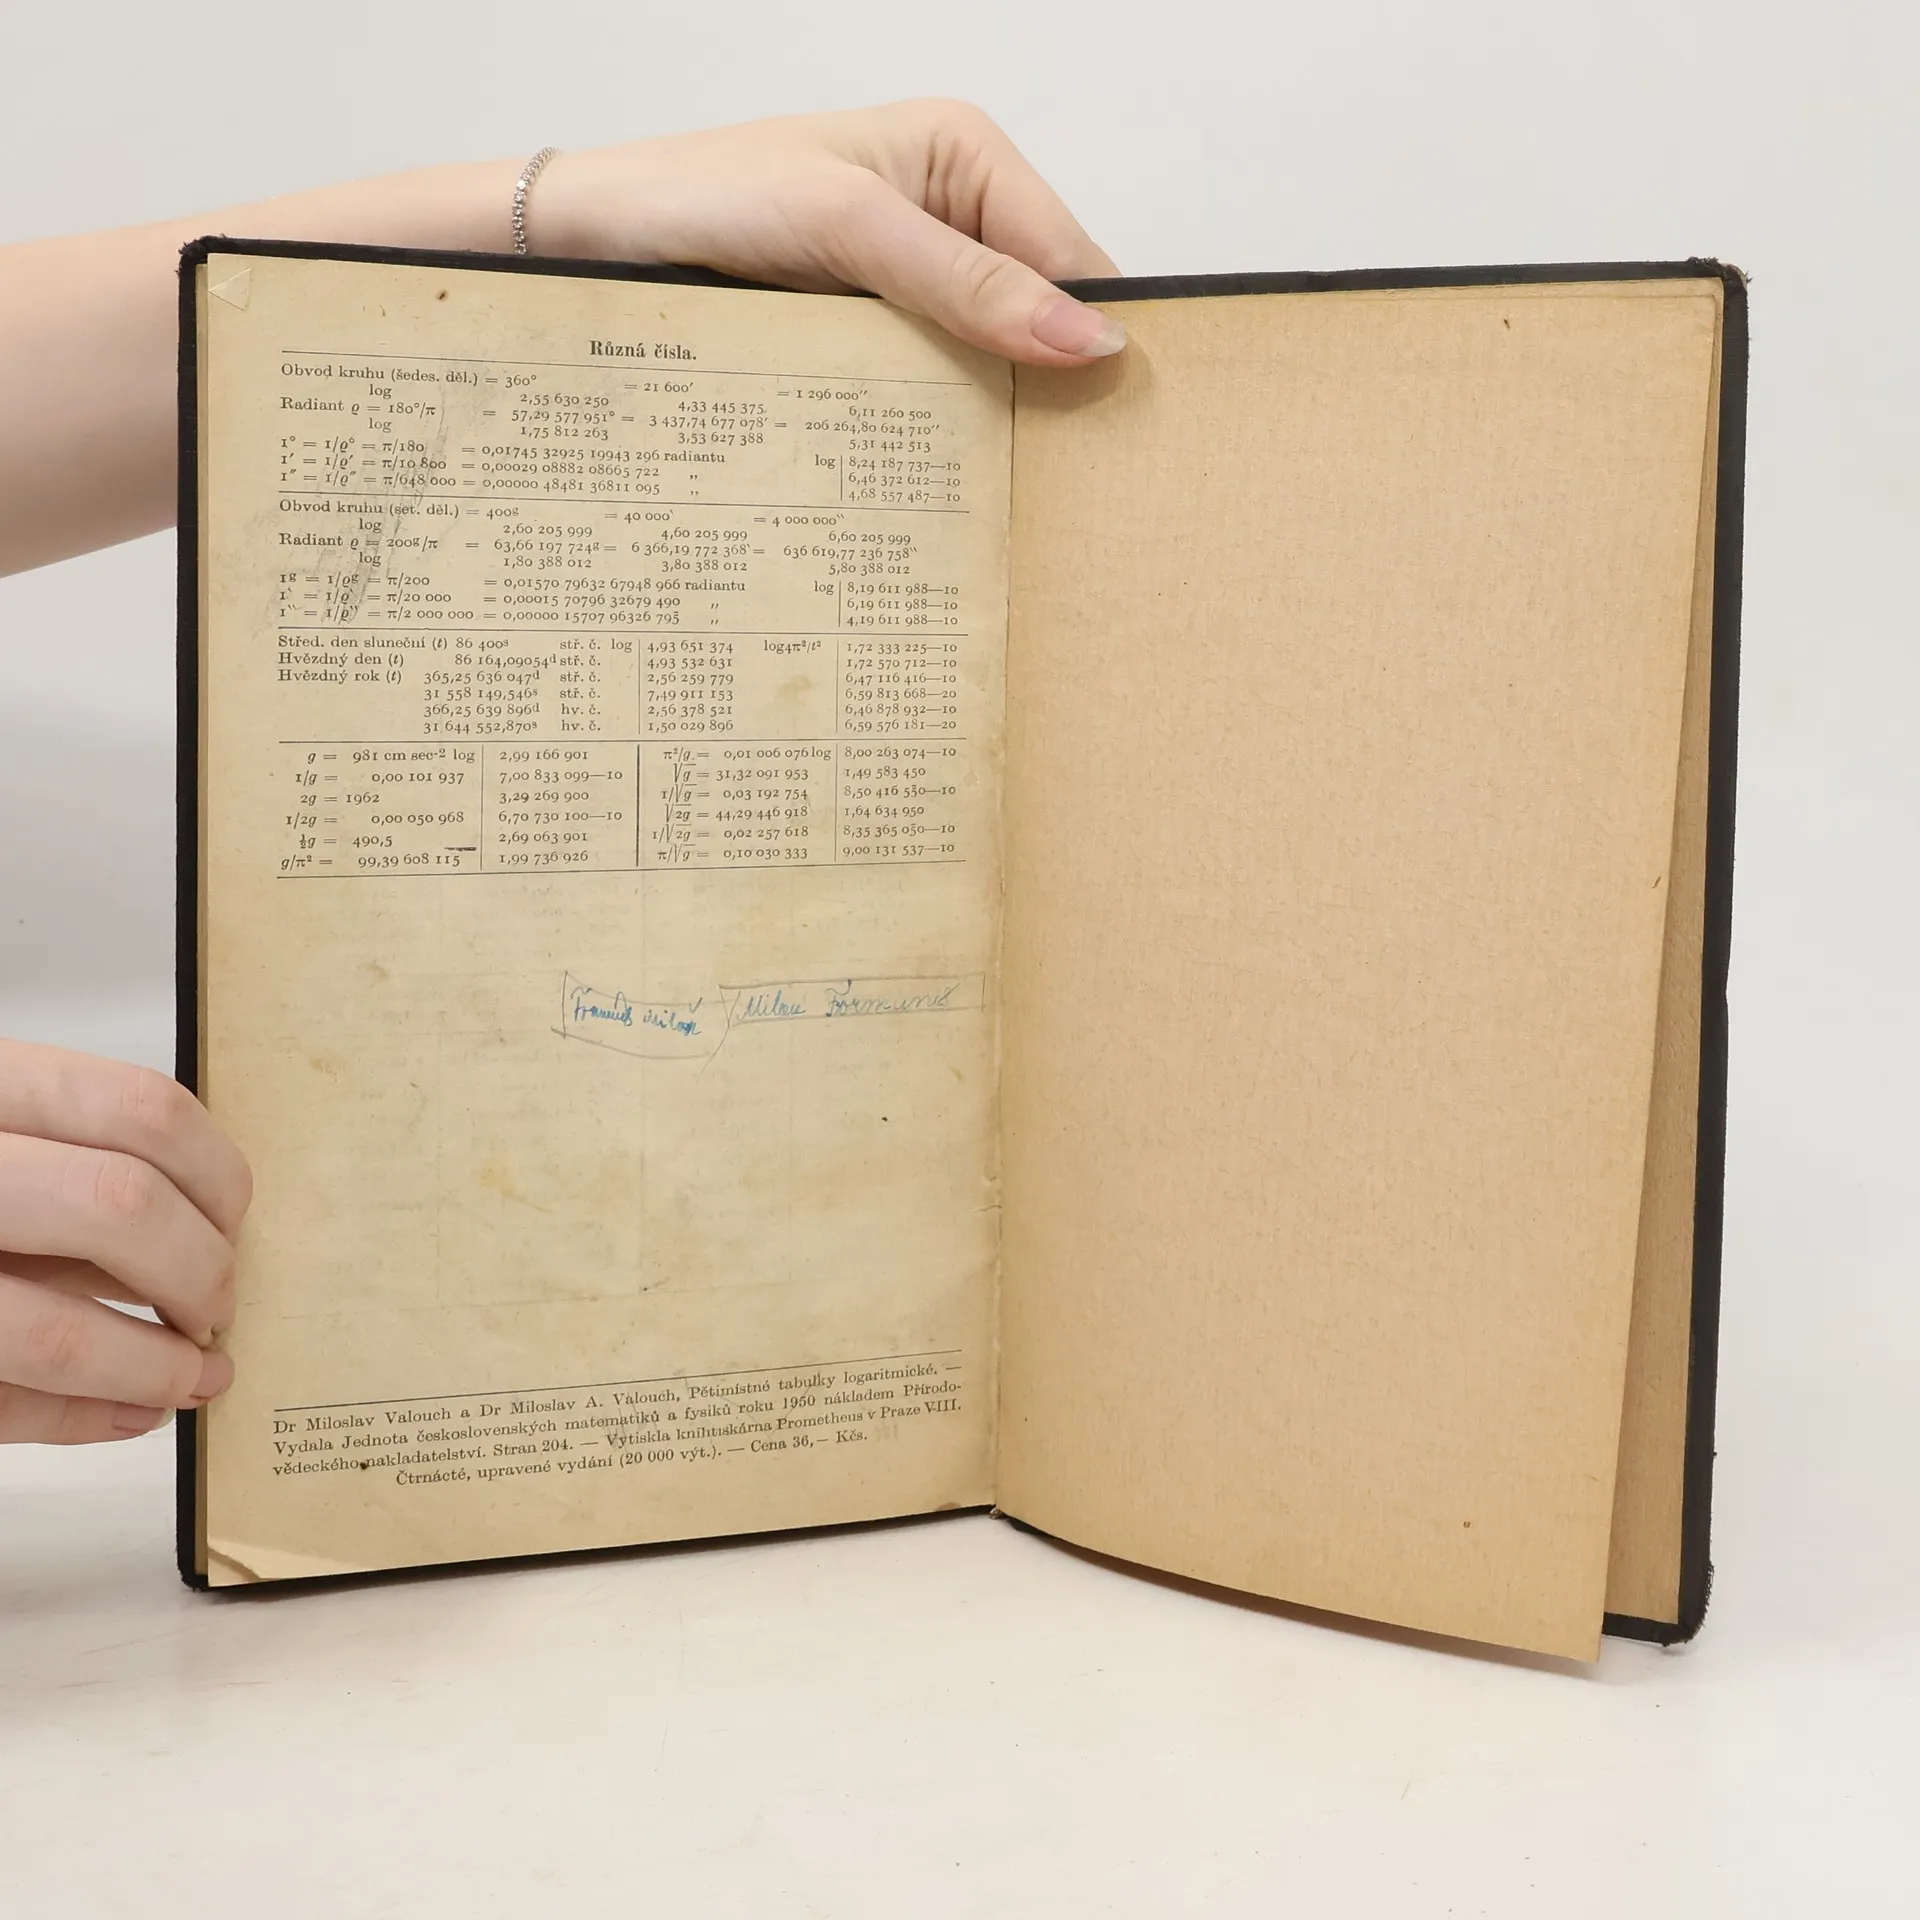 Různá čísla.
Obvod kruhu (šedes. děl.) = 360° = 21 600′ = 1 296 000″
log 2,55 630 250 4,33 445 375 6,11 260 500
Radiant ϱ = 180°/π = 57,29 577 951° = 3 437,74 677 078′ = 206 264,80 624 710″
log 1,75 812 263 3,53 627 388 5,31 442 513
1° = 1/ϱ° = π/180 = 0,01745 32925 19943 296 radiantu log 8,24 187 737—10
1′ = 1/ϱ′ = π/10 800 = 0,00029 08882 08665 722 „ 6,46 372 612—10
1″ = 1/ϱ″ = π/648 000 = 0,00000 48481 36811 095 „ 4,68 557 487—10
Obvod kruhu (set. děl.) = 400g = 40 000‵ = 4 000 000‶
log 2,60 205 999 4,60 205 999 6,60 205 999
Radiant ϱ = 200g/π = 63,66 197 724g = 6 366,19 772 368‵ = 636 619,77 236 758‶
log 1,80 388 012 3,80 388 012 5,80 388 012
1g = 1/ϱg = π/200 = 0,01570 79632 67948 966 radiantu log 8,19 611 988—10
1‵ = 1/ϱ‵ = π/20 000 = 0,00015 70796 32679 490 „ 6,19 611 988—10
1‶ = 1/ϱ‶ = π/2 000 000 = 0,00000 15707 96326 795 „ 4,19 611 988—10
Střed. den sluneční (t) 86 400s stř. č. log 4,93 651 374 log4π²/t² 1,72 333 225—10
Hvězdný den (t) 86 164,09054d stř. č. 4,93 532 631 1,72 570 712—10
Hvězdný rok (t) 365,25 636 047d stř. č. 2,56 259 779 6,47 116 416—10
31 558 149,546s stř. č. 7,49 911 153 6,59 813 668—20
366,25 639 896d hv. č. 2,56 378 521 6,46 878 932—10
31 644 552,870s hv. č. 1,50 029 896 6,59 576 181—20
g = 981 cm sec-2 log 2,99 166 901 π²/g = 0,01 006 076 log 8,00 263 074—10
1/g = 0,00 101 937 7,00 833 099—10 √g = 31,32 091 953 1,49 583 450
2g = 1962 3,29 269 900 1/√g = 0,03 192 754 8,50 416 550—10
1/2g = 0,00 050 968 6,70 730 100—10 √2g = 44,29 446 918 1,64 634 950
½g = 490,5 2,69 063 901 1/√2g = 0,02 257 618 8,35 365 050—10
g/π² = 99,39 608 115 1,99 736 926 π/√g = 0,10 030 333 9,00 131 537—10
Milan
Dr Miloslav Valouch a Dr Miloslav A. Valouch, Pětimístné tabulky logaritmické. —
Vydala Jednota československých matematiků a fysiků roku 1950 nákladem Přírodo-
vědeckého nakladatelství. Stran 204. — Vytiskla knihtiskárna Prometheus v Praze VIII.
Čtrnácté, upravené vydání (20 000 výt.). — Cena 36,— Kčs.